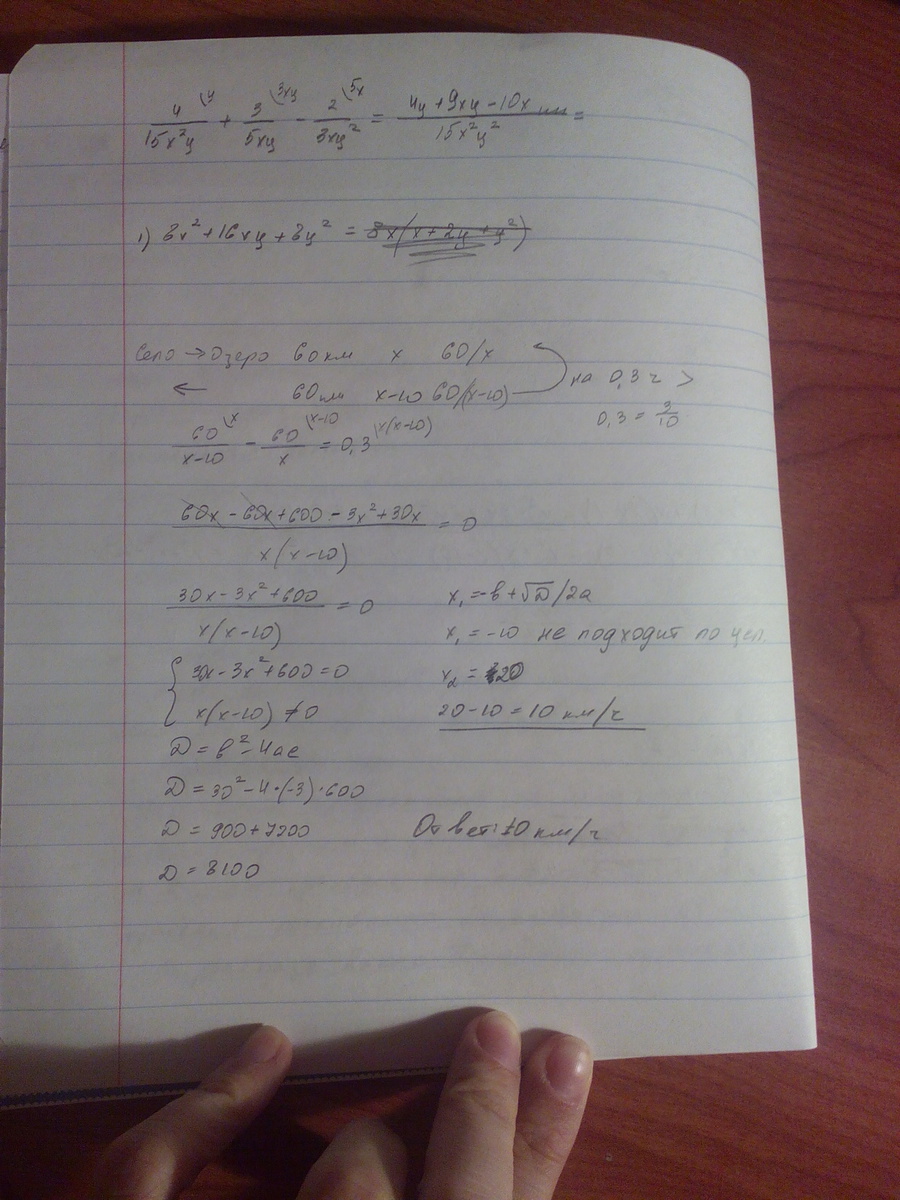 4 (y / 15x²y + 3 (3xy / 5xy - 2 (5x / 3xy² = 4y + 9xy - 10x / 15x²y² =
1) 8x² + 16xy + 8y² = 8x(x + 2y + y²)
Село → Озеро 60км x 60/x
← 60км x-10 60/(x-10) на 0,3 ч >
0,3 = 3/10
60 (x / x-10 - 60 (x-10 / x = 0,3 (x(x-10)
60x - 60x + 600 - 3x² + 30x / x(x-10) = 0
30x - 3x² + 600 / x(x-10) = 0
{ 30x - 3x² + 600 = 0
x(x-10) ≠ 0
D = b² - 4ac
D = 30² - 4·(-3)·600
D = 900 + 7200
D = 8100
x₁ = -b + √D / 2a
x₁ = -10 не подходит по усл.
x₂ = 20
20 - 10 = 10 км/ч
Ответ: 10 км/ч